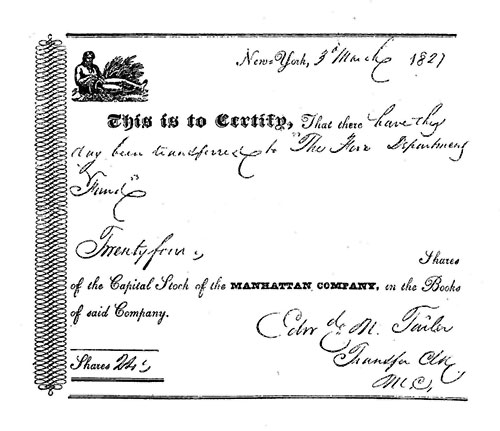 New-York, 3d March 1827
This is to Certify, That there have this
day been transferred to "The Fire Department
Fund"
Twenty four Shares
of the Capital Stock of the MANHATTAN COMPANY, in the Books
of said Company.
Edwd. M. Tailer
Transfer Clk
M. C.
Shares 24